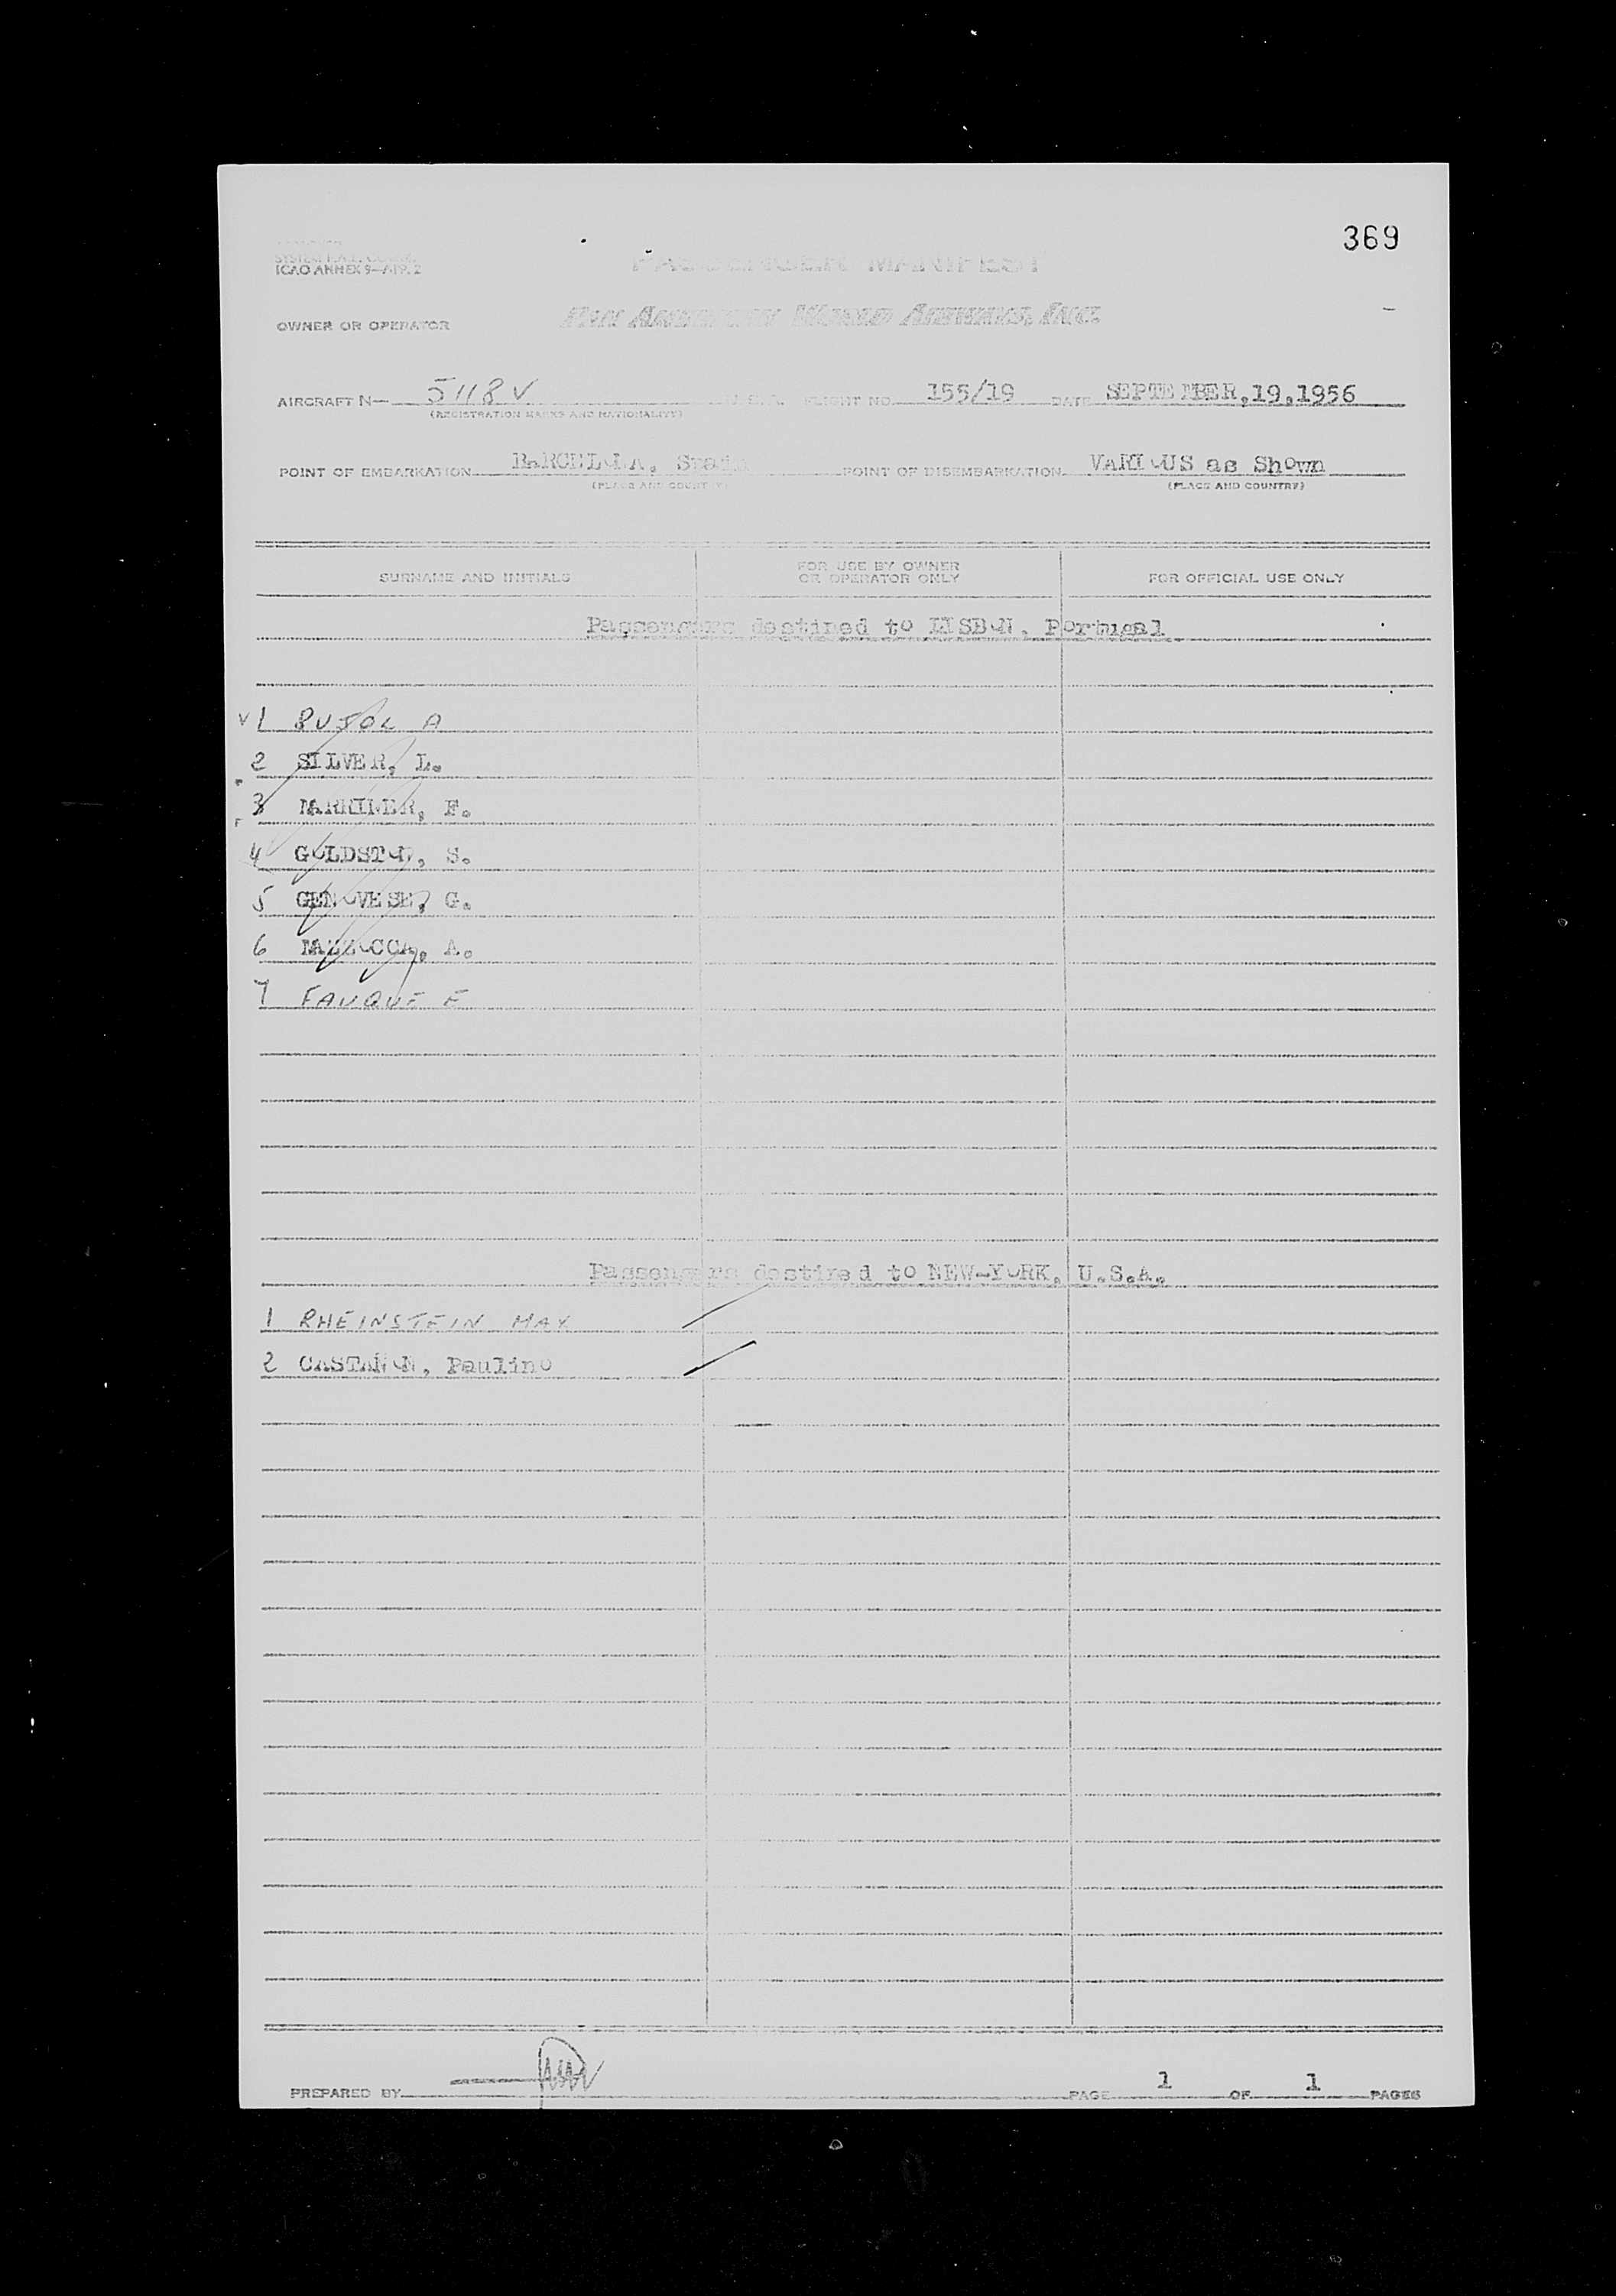 369
ICAO ANNEX 9—APP. 2
PASSENGER MANIFEST
OWNER OR OPERATOR PAN AMERICAN WORLD AIRWAYS, INC.
AIRCRAFT N— 5118V U.S.A. FLIGHT NO. 155/19 DATE SEPTEMBER,19,1956
(REGISTRATION MARKS AND NATIONALITY)
POINT OF EMBARKATION BARCELONA, Spain POINT OF DISEMBARKATION VARIOUS as Shown
(PLACE AND COUNTRY) (PLACE AND COUNTRY)
SURNAME AND INITIALS FOR USE BY OWNER OR OPERATOR ONLY FOR OFFICIAL USE ONLY
Passengers destined to LISBON, Portugal
1 PUJOL A
2 SILVER, L.
3 F.
4 GOLDSTON, S.
5 GENOVESE, G.
6 MAZZOCCA, A.
7 FAUQUE F
Passengers destined to NEW-YORK, U.S.A.
1 RHEINSTEIN MAX
2 CASTAÑON, Paulino
PREPARED BY PAGE 1 OF 1 PAGES